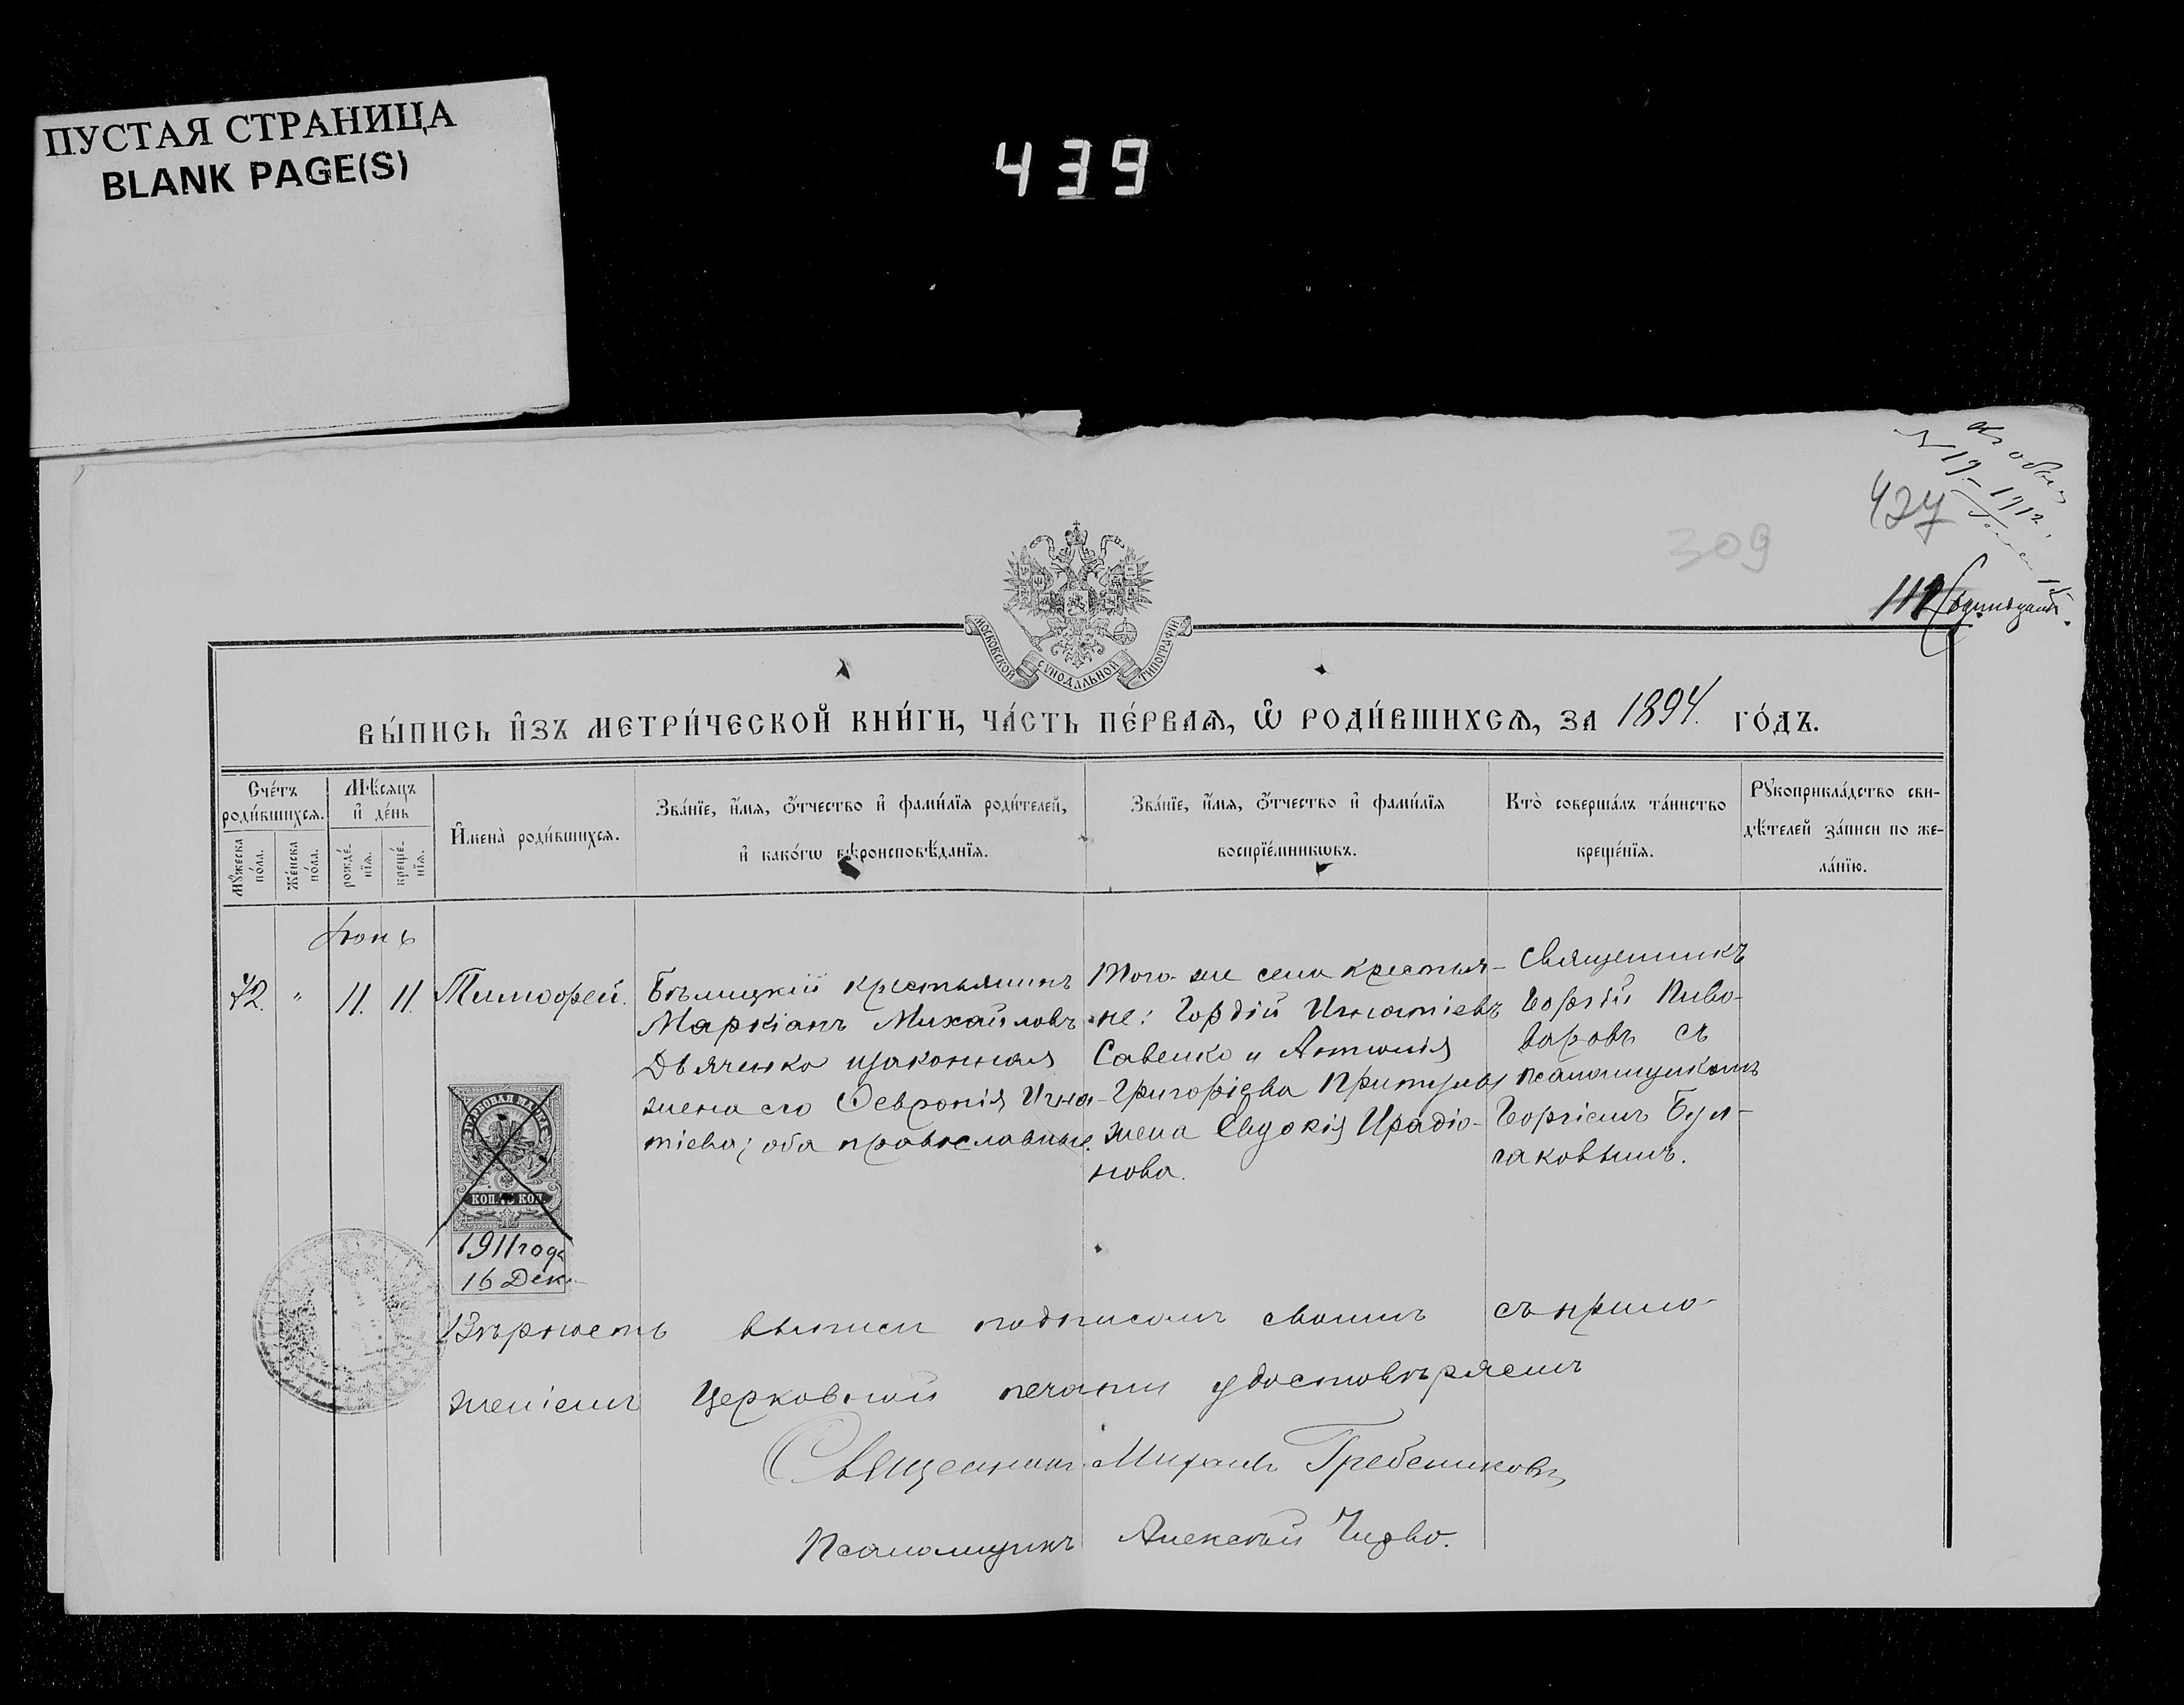 ПУСТАЯ СТРАНИЦА
BLANK PAGE(S)
439
427
309
МОСКОВСКОЙ СѴНОДАЛЬНОЙ ТИПОГРАФІИ
ВЫ́ПИСЬ И҆ЗЪ МЕТРИ́ЧЕСКОЙ КНИ́ГИ, ЧА́СТЬ ПЕ́РВАѦ, Ѡ҆ РОДИ́ВШИХСѦ, ЗА 1894. ГО́ДЪ.
Сче́тъ роди́вшихсѧ.
Мѣ́сяцъ и҆ де́нь
И҆мена̀ роди́вшихсѧ.
Зва́нїе, и҆́мѧ, ѻ҆́тчество и҆ фами́лїѧ роди́телей,
и҆ како́гѡ вѣроисповѣ́данїѧ.
Зва́нїе, и҆́мѧ, ѻ҆́тчество и҆ фами́лїѧ
воспрїе́мникѡвъ.
Кто̀ соверша́лъ та́инство
креще́нїѧ.
Рꙋкоприкла́дство сви-
дѣ́телей за́писи по же-
ла́нїю.
Мꙋ́жеска по́ла.
Же́нска по́ла.
рожде́-нїѧ.
креще́-нїѧ.
Іюнь
72. " 11. 11. Тимофей.
Бѣлицкій крестьянинъ
Маркіанъ Михайловъ
Дьяченко и законная
жена его Февронія Игна-
тіева; оба православные.
Того-же села крестья-
не: Гордій Игнатіевъ
Савенко и Антонія
Григоріева Притулы
жена Евдокія Иродіо-
нова.
Священникъ
Георгій Пиво-
варовъ съ
псаломщикомъ
Георгіемъ Бул-
гаковымъ.
ГЕРБОВАЯ МАРКА
КОП. КОП.
1911 года
16 Дек.
Вѣрность выписи подписомъ своимъ съ прило-
женіемъ Церковной печати удостовѣряемъ
Священникъ Михаилъ Гребениковъ
Псаломщикъ Алексѣй